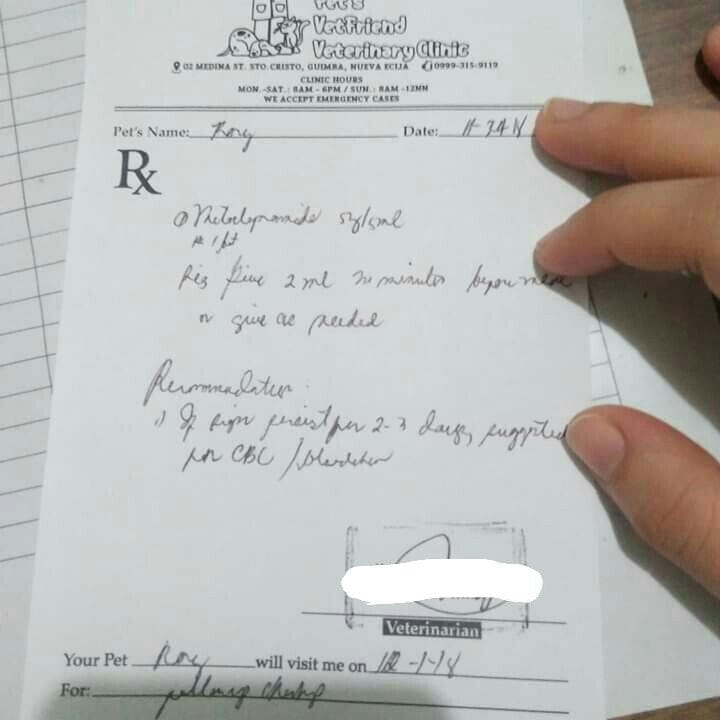 Pet's
VetFriend
Veterinary Clinic
02 MEDINA ST. STO. CRISTO, GUIMBA, NUEVA ECIJA 0999-315-9119
CLINIC HOURS
MON.-SAT.: 8AM - 6PM / SUN.: 8AM -12NN
WE ACCEPT EMERGENCY CASES
Pet's Name: Rory Date:
Rx
1) Metoclopramide 5mg/5ml
# 1 bt
Sig Give 2 ml 30 minutes before meal
or give as needed
Recommendation:
1) If sign persist for 2-3 days, suggested
for CBC /
Veterinarian
Your Pet Rory will visit me on 12-1-18
For: follow up checkup